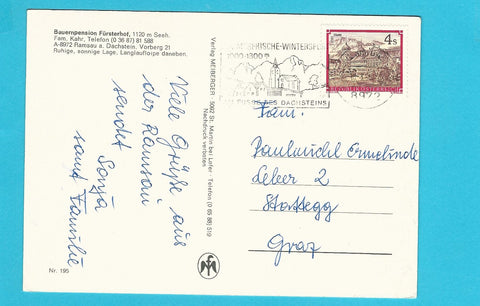 Bauernpension Fürsterhof, 1120 m Seeh.
Fam. Kahr, Telefon (0 36 87) 81 588
A-8972 Ramsau a. Dachstein, Vorberg 21
Ruhige, sonnige Lage. Langlaufloipe daneben.
Viele Grüße aus
der Ramsau
sendt Sonja
samt Familie
Nr. 195
Verlag MEIBERGER · 5092 St. Martin bei Lofer · Telefon (0 65 88) 519
Nachdruck verboten
-WINTERSPO
1000-1300
AM FUSSE DES DACHSTEINS
8972
4 S
REPUBLIK ÖSTERREICH
Fam.
Ermelinde
Leber 2
Stattegg
Graz